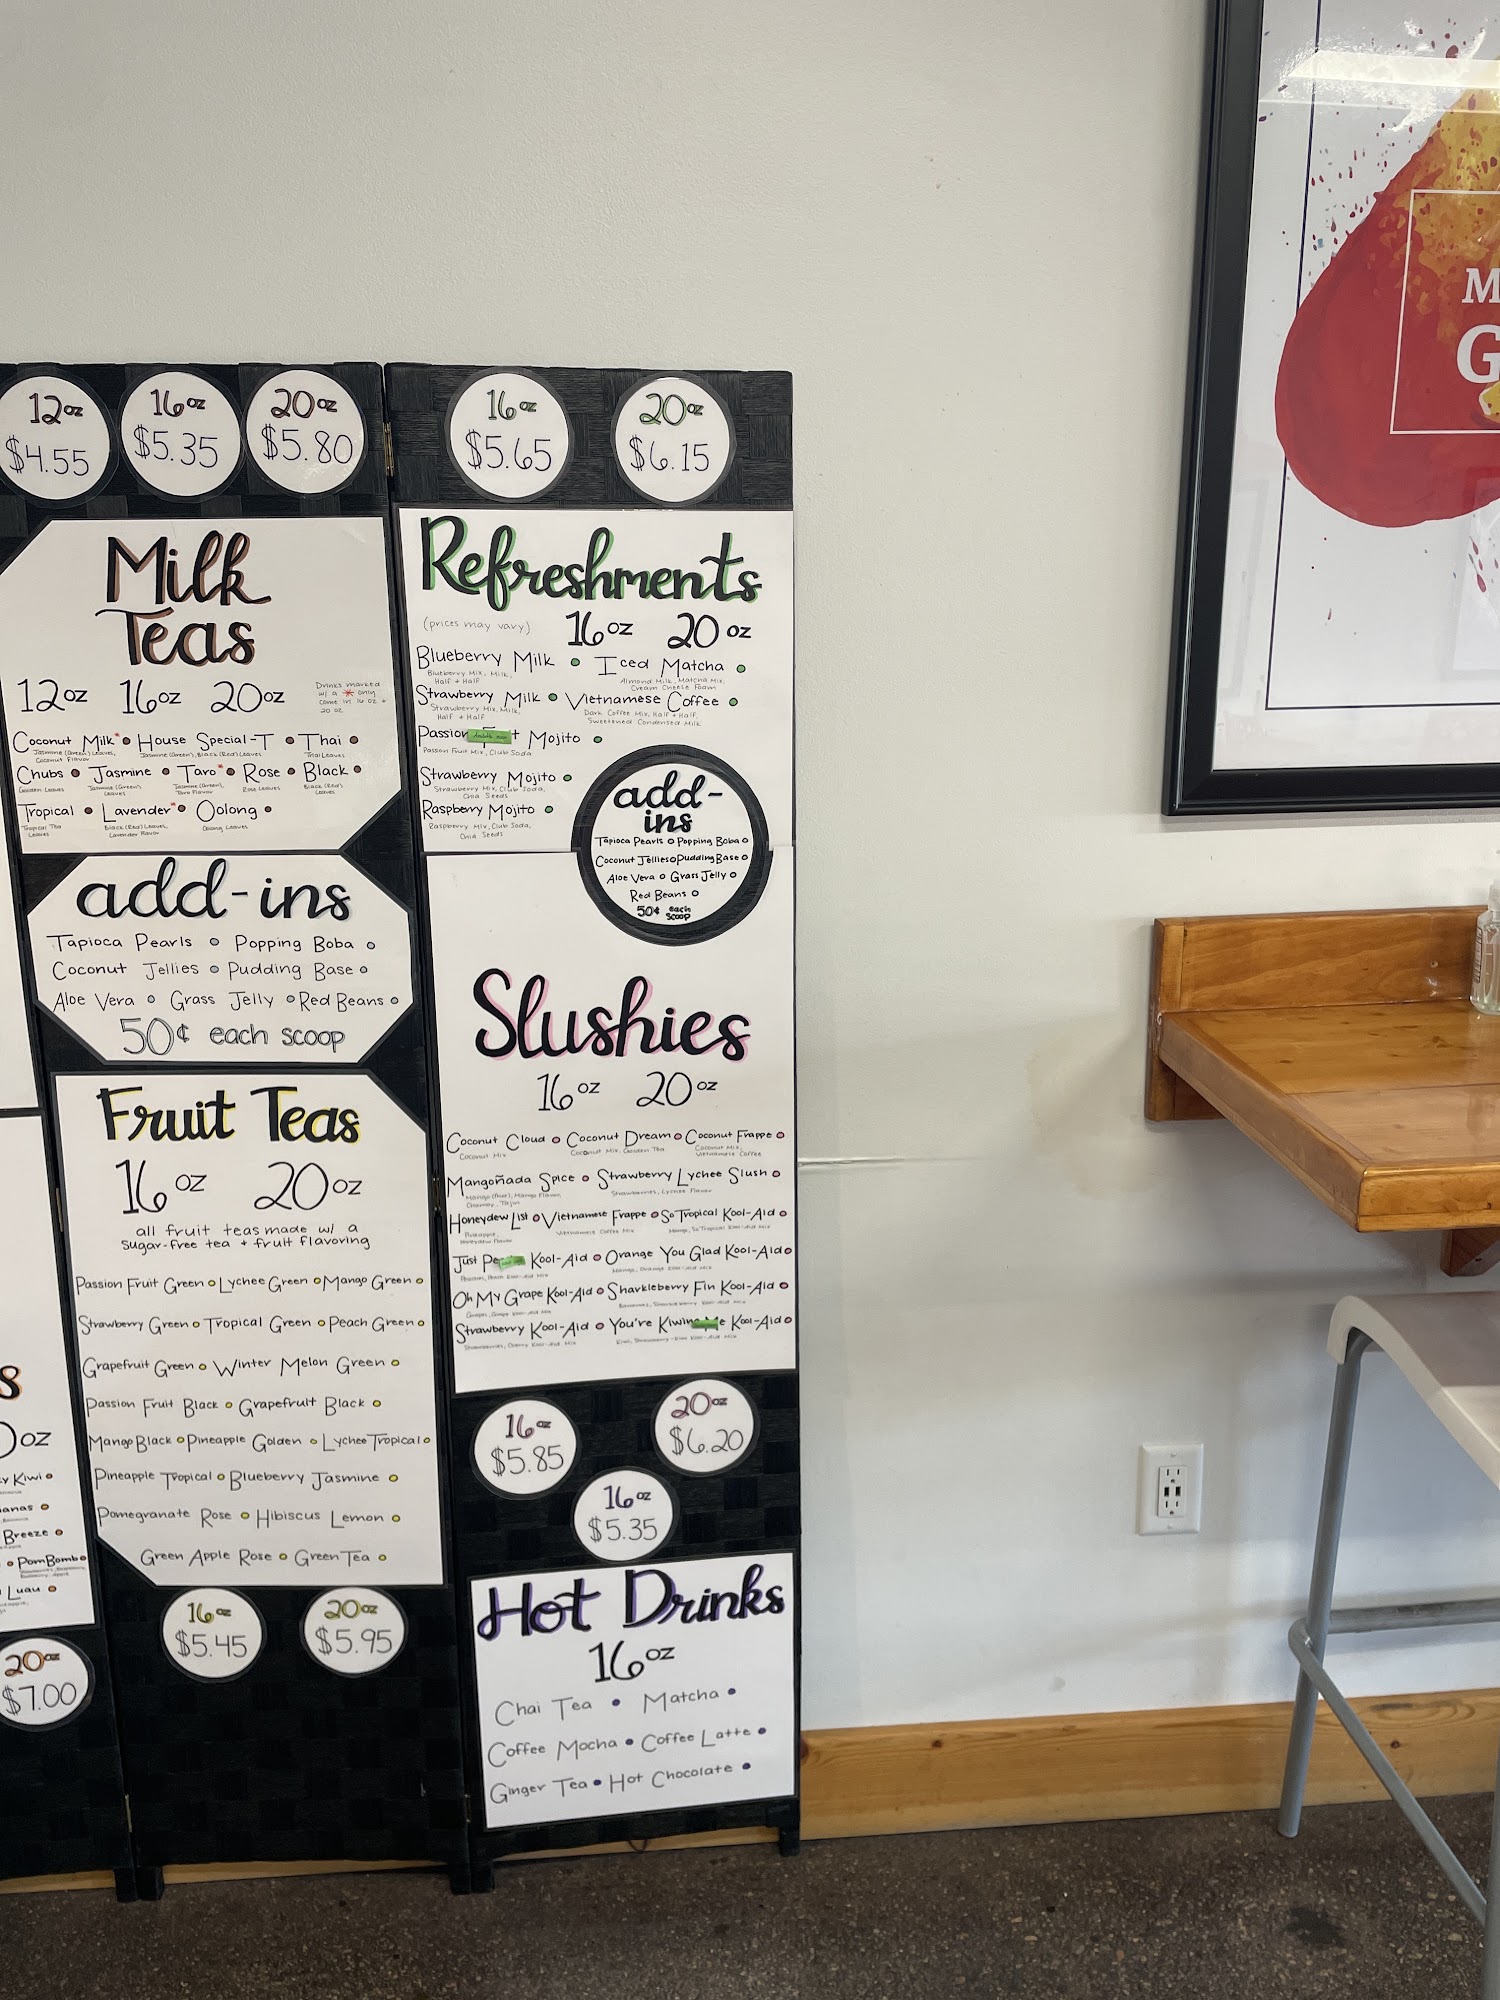 12oz
$4.55
16oz
$5.35
20oz
$5.80
Milk
Teas
12oz 16oz 20oz
Drinks marked
w/ a * only
come in 16 oz +
20 oz
Coconut Milk* • House Special-T • Thai •
Jasmine (Green) Leaves, Coconut Flavor
Jasmine (Green), Black (Red) Leaves
Thai Leaves
Chubs • Jasmine • Taro* • Rose • Black •
Golden Leaves
Jasmine (Green) Leaves
Jasmine (Green), Taro Flavor
Rose Leaves
Black (Red) Leaves
Tropical • Lavender* • Oolong •
Tropical Tea Leaves
Black (Red) Leaves, Lavender Flavor
Oolong Leaves
add-ins
Tapioca Pearls • Popping Boba •
Coconut Jellies • Pudding Base •
Aloe Vera • Grass Jelly • Red Beans •
50¢ each scoop
Fruit Teas
16oz 20oz
all fruit teas made w/ a
sugar-free tea + fruit flavoring
Passion Fruit Green • Lychee Green • Mango Green •
Strawberry Green • Tropical Green • Peach Green •
Grapefruit Green • Winter Melon Green •
Passion Fruit Black • Grapefruit Black •
Mango Black • Pineapple Golden • Lychee Tropical •
Pineapple Tropical • Blueberry Jasmine •
Pomegranate Rose • Hibiscus Lemon •
Green Apple Rose • Green Tea •
16oz
$5.45
20oz
$5.95
16oz
$5.65
20oz
$6.15
Refreshments
(prices may vary) 16oz 20oz
Blueberry Milk • Iced Matcha •
Blueberry Mix, Milk, Half + Half
Almond Milk, Matcha Mix, Cream Cheese Foam
Strawberry Milk • Vietnamese Coffee •
Strawberry Mix, Milk, Half + Half
Dark Coffee Mix, Half + Half, Sweetened Condensed Milk
Passion t Mojito •
Passion Fruit Mix, Club Soda
Strawberry Mojito •
Strawberry Mix, Club Soda, Chia Seeds
Raspberry Mojito •
Raspberry Mix, Club Soda, Chia Seeds
add-
ins
Tapioca Pearls • Popping Boba •
Coconut Jellies • Pudding Base •
Aloe Vera • Grass Jelly •
Red Beans •
50¢ each scoop
Slushies
16oz 20oz
Coconut Cloud • Coconut Dream • Coconut Frappe •
Coconut Mix
Coconut Mix, Golden Tea
Coconut Mix, Vietnamese Coffee
Mangoñada Spice • Strawberry Lychee Slush •
Strawberries, Lychee Flavor
Honeydew List • Vietnamese Frappe • So Tropical Kool-Aid •
Pineapple, Honeydew Flavor
Vietnamese Coffee Mix
Mango, So Tropical Kool-Aid Mix
Just Pe Kool-Aid • Orange You Glad Kool-Aid •
Oh My Grape Kool-Aid • Sharkleberry Fin Kool-Aid •
Strawberry Kool-Aid • You're Kiwin e Kool-Aid •
16oz
$5.85
20oz
$6.20
16oz
$5.35
Hot Drinks
16oz
Chai Tea • Matcha •
Coffee Mocha • Coffee Latte •
Ginger Tea • Hot Chocolate •
s
oz
Kiwi •
anas •
Breeze •
• PomBomb •
Luau •
20oz
$7.00
M
G